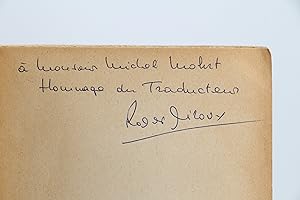 à Monsieur Michel Mohrt
Hommage du Traducteur
Roger Giroux